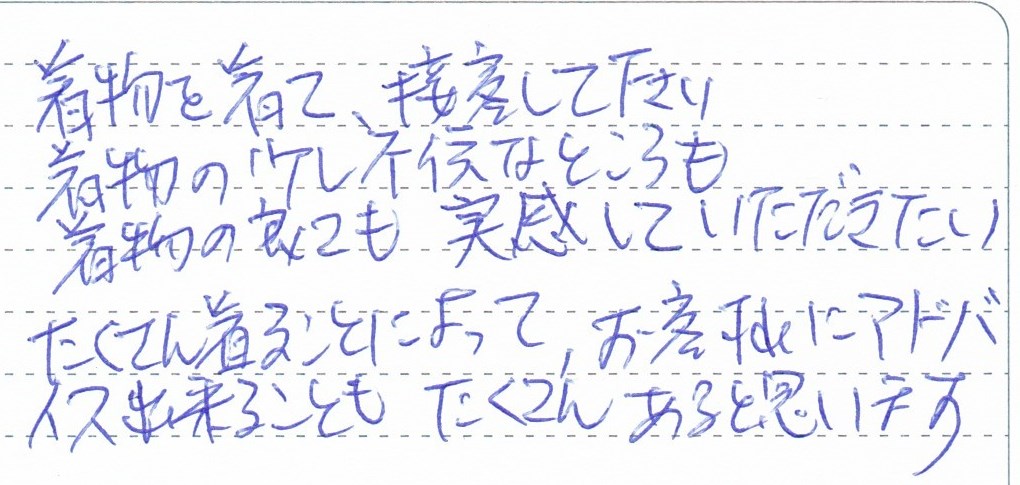 着物を着て、接客して下さい
着物の少し不便なところも
着物の良さも 実感していただきたい
たくさん着ることによって、お客様にアドバ
イス出来ることも たくさんあると思います